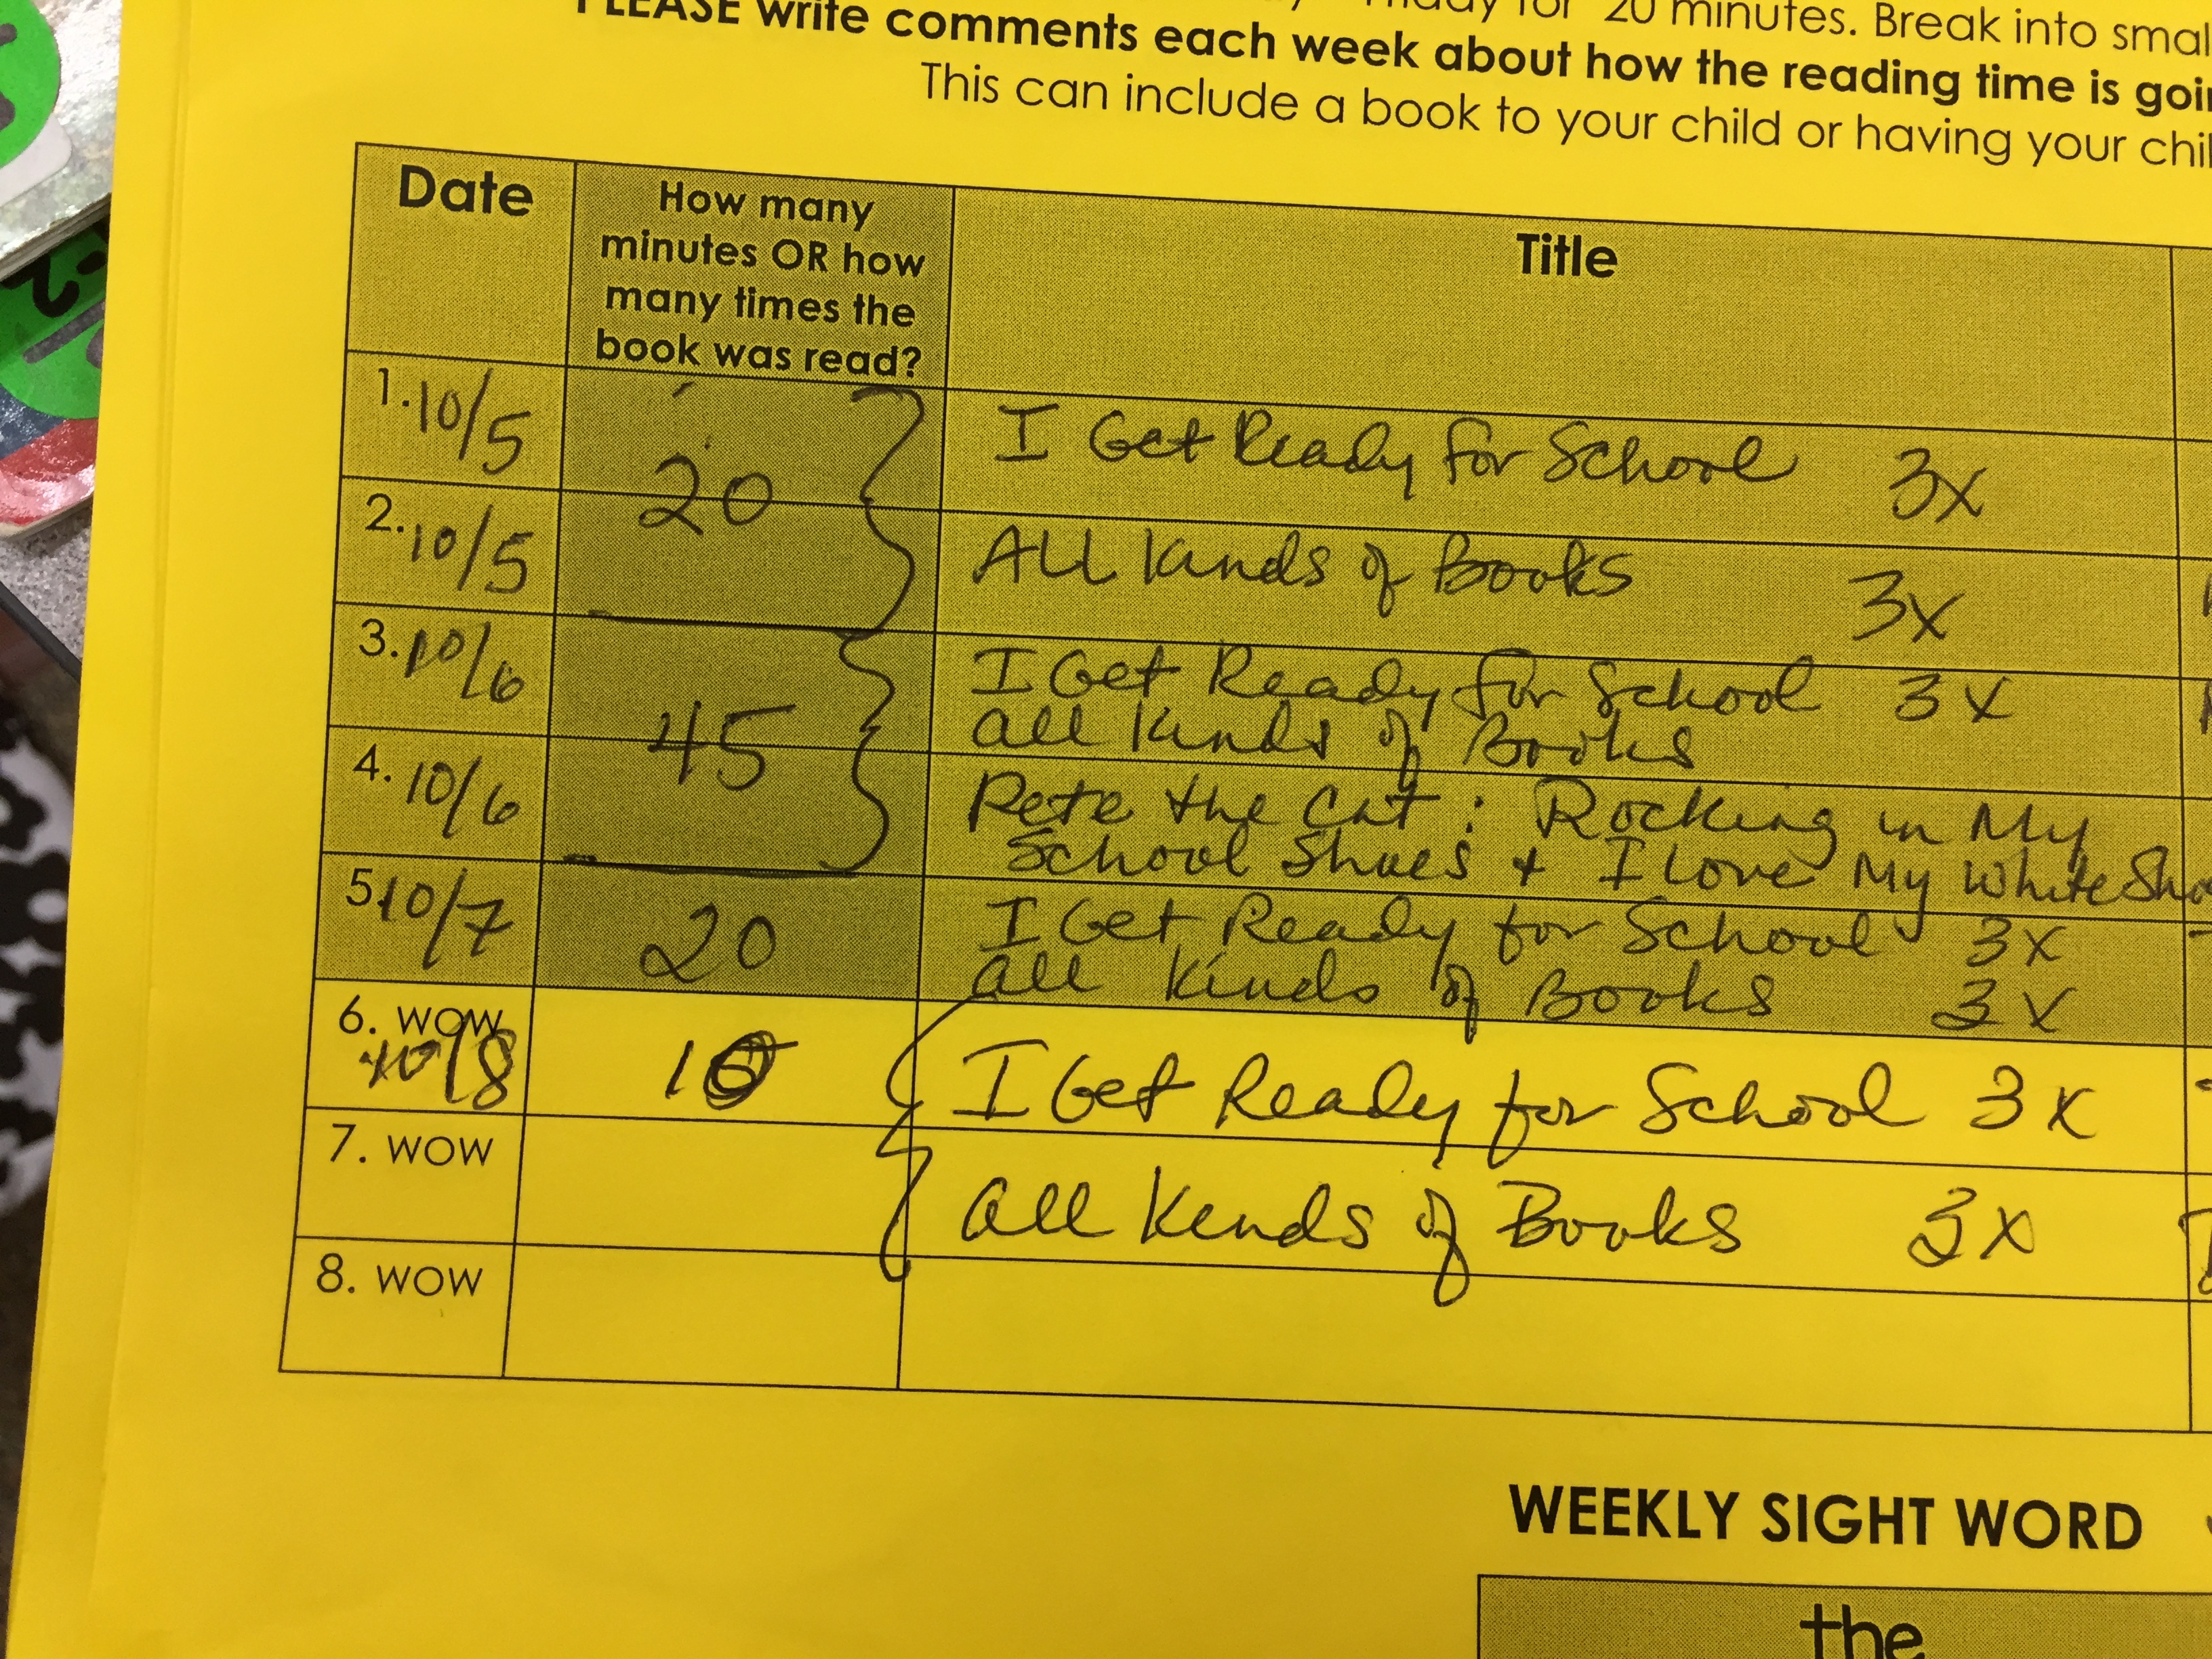 for 20 minutes. Break into
PLEASE write comments each week about how the reading time is
This can include a book to your child or having your
Date
How many
minutes OR how
many times the
book was read?
Title
1. 10/5
20
I Get Ready for School 3x
2. 10/5
All Kinds of Books 3x
3. 10/6
45
I Get Ready for School 3x
all Kinds of Books
4. 10/6
Pete the Cat : Rocking in My
School Shoes + I Love My White
5. 10/7
20
I Get Ready for School 3x
all Kinds of Books 3x
6. WOW
10/8
I Get Ready for School 3x
7. WOW
all Kinds of Books 3x
8. WOW
WEEKLY SIGHT WORD
the